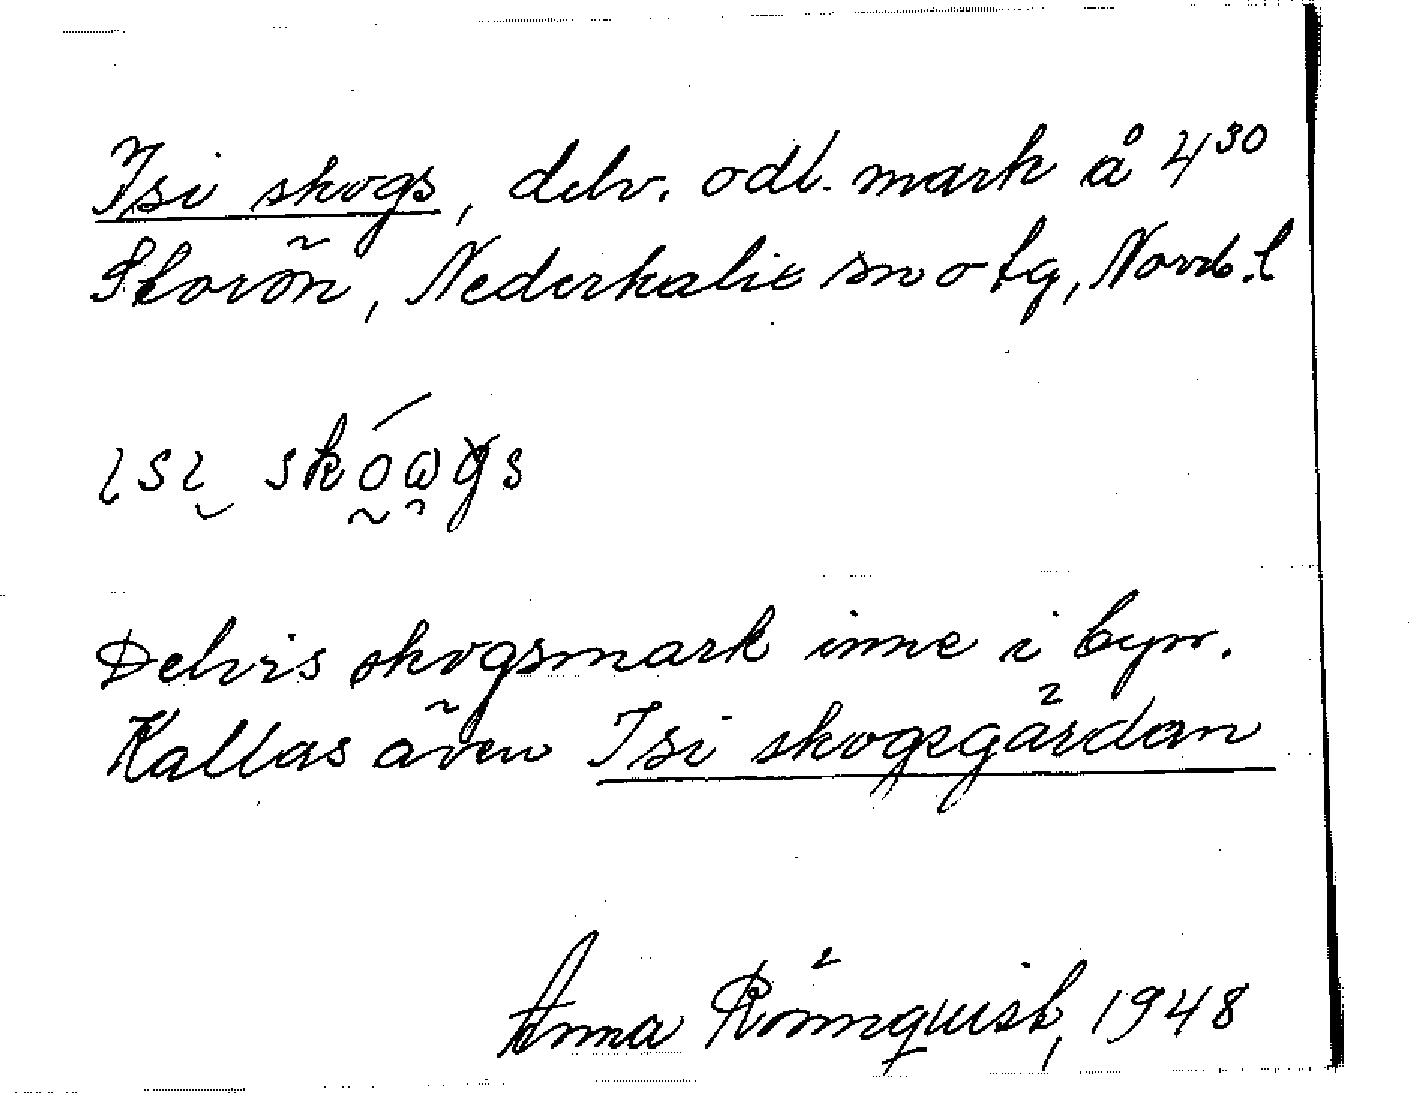 Isi skogs, delv. odl. mark å 4³⁰
Storön, Nederkalix sn o tg, Norrb. l
ɩsɩ skóωgs
Delvis skogsmark inne i byn.
Kallas även Isi skogsgårdan
Anna Rönnquist, 1948